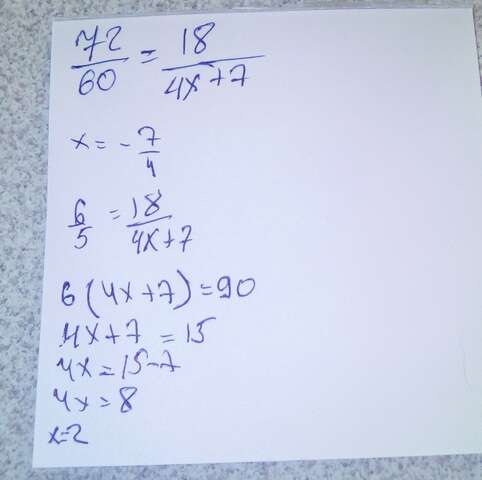 72/60 = 18/4x+7
x = -7/4
6/5 = 18/4x+7
6(4x+7)=90
4x+7=15
4x=15-7
4x=8
x=2